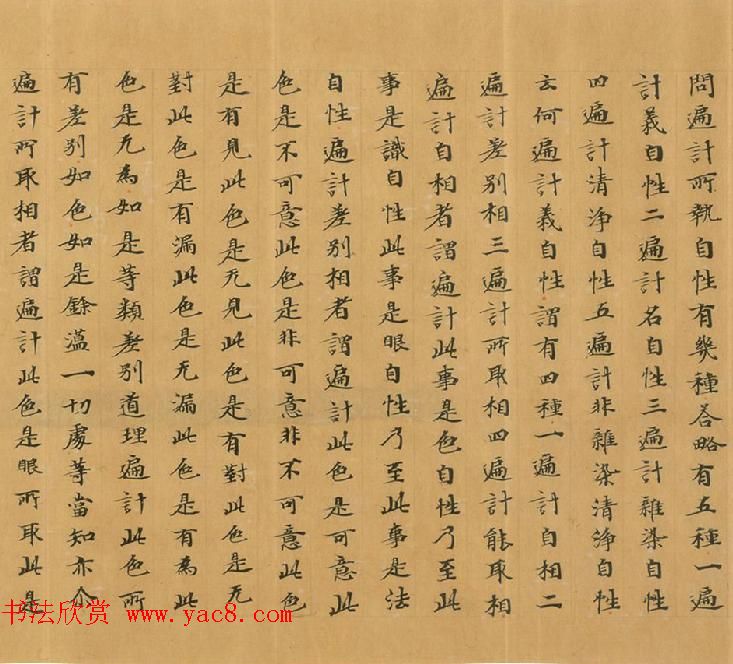 問遍計所執自性有幾種答略有五種一遍
計義自性二遍計名自性三遍計雜染自性
四遍計清淨自性五遍計非雜染清淨自性
云何遍計義自性謂有四種一遍計自相二
遍計差別相三遍計所取相四遍計能取相
遍計自相者謂遍計此事是色自性乃至此
事是識自性此事是眼自性乃至此事是法
自性遍計差別相者謂遍計此色是可意此
色是不可意此色是非可意非不可意此色
是有見此色是无見此色是有對此色是无
對此色是有漏此色是无漏此色是有為此
色是无為如是等類差別道理遍計此色所
有差別如色如是餘蕴一切處等當知亦尒
遍計所取相者謂遍計此色是眼所取此是
书法欣赏 www.yac8.com